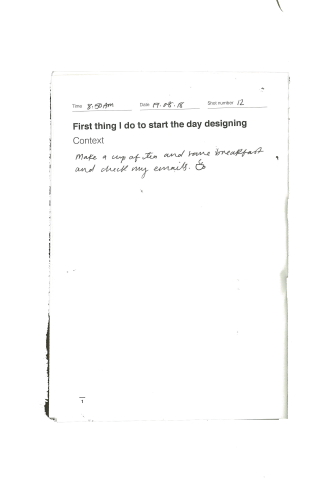 Time 8.50AM Date 19.08.18 Shot number 12
First thing I do to start the day designing
Context
Make a cup of tea and some breakfast
and check my emails.
1